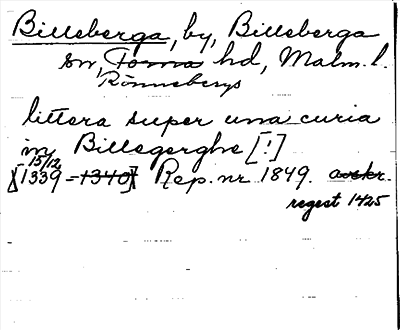 Billeberga, by, Billeberga
sn, Torna hd, Malm. l.
Rönnebergs
littera super una curia
in Billegerghe [!]
15/12
[1339 - 1340] Rep. nr 1849. avskr.
regest 1425